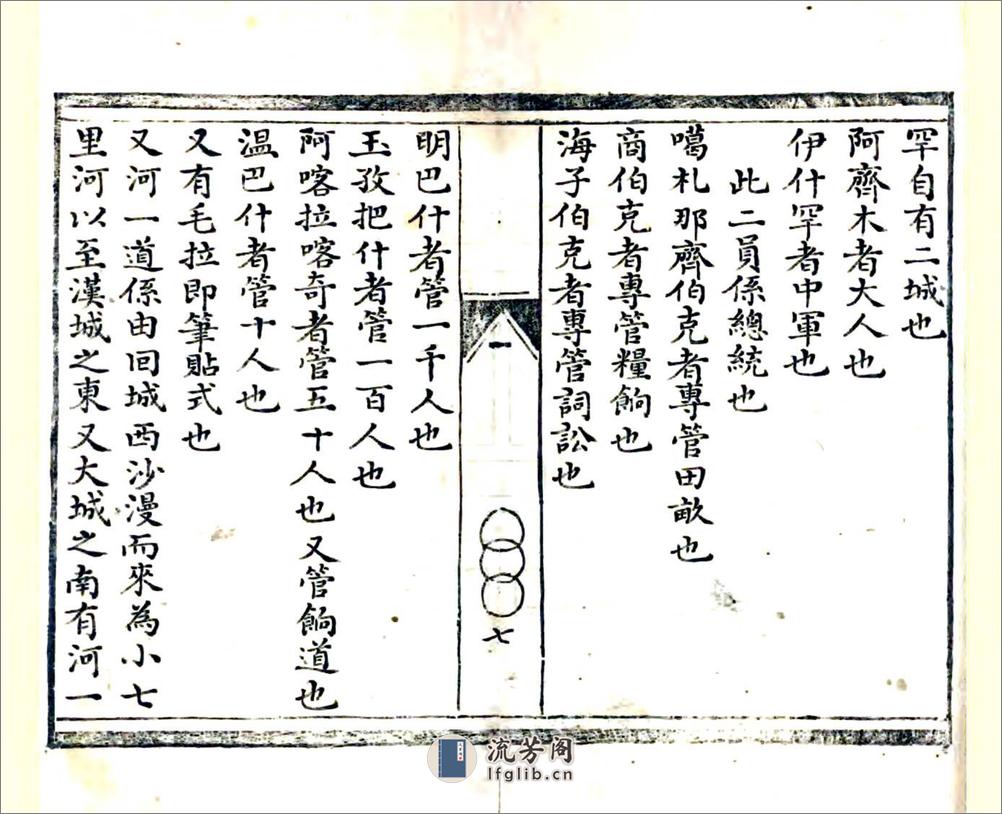 罕自有二城也
阿齊木者大人也
伊什罕者中軍也
此二員係總統也
噶札那齊伯克者專管田畝也
商伯克者專管糧餉也
海子伯克者專管詞訟也
一
七
明巴什者管一千人也
玉孜把什者管一百人也
阿喀拉喀奇者管五十人也又管餉道也
温巴什者管十人也
又有毛拉即筆貼式也
又河一道係由回城西沙漫而來為小七
里河以至漢城之東又大城之南有河一
流芳阁
lfglib.cn